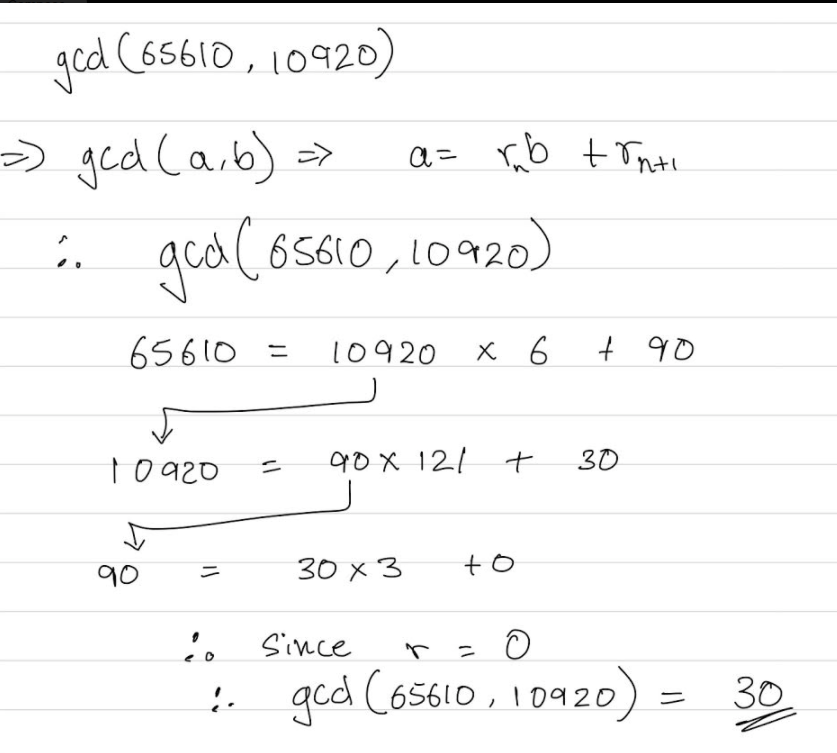 gcd(65610, 10920)
=> gcd(a,b) => a = rₙb + rₙ₊₁
∴ gcd(65610, 10920)
65610 = 10920 × 6 + 90
10920 = 90 × 121 + 30
90 = 30 × 3 + 0
∴ since r = 0
∴ gcd(65610, 10920) = 30